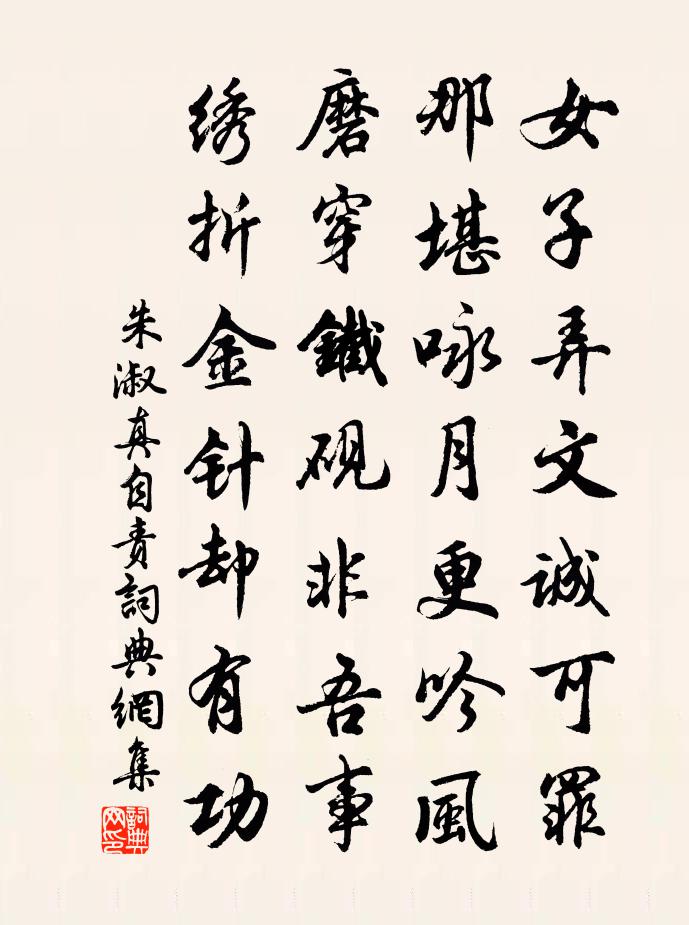 女子弄文誠可罪
那堪咏月更吟風
磨穿鐵硯非吾事
绣折金针却有功
朱淑真自责詞典網集
詞典网印